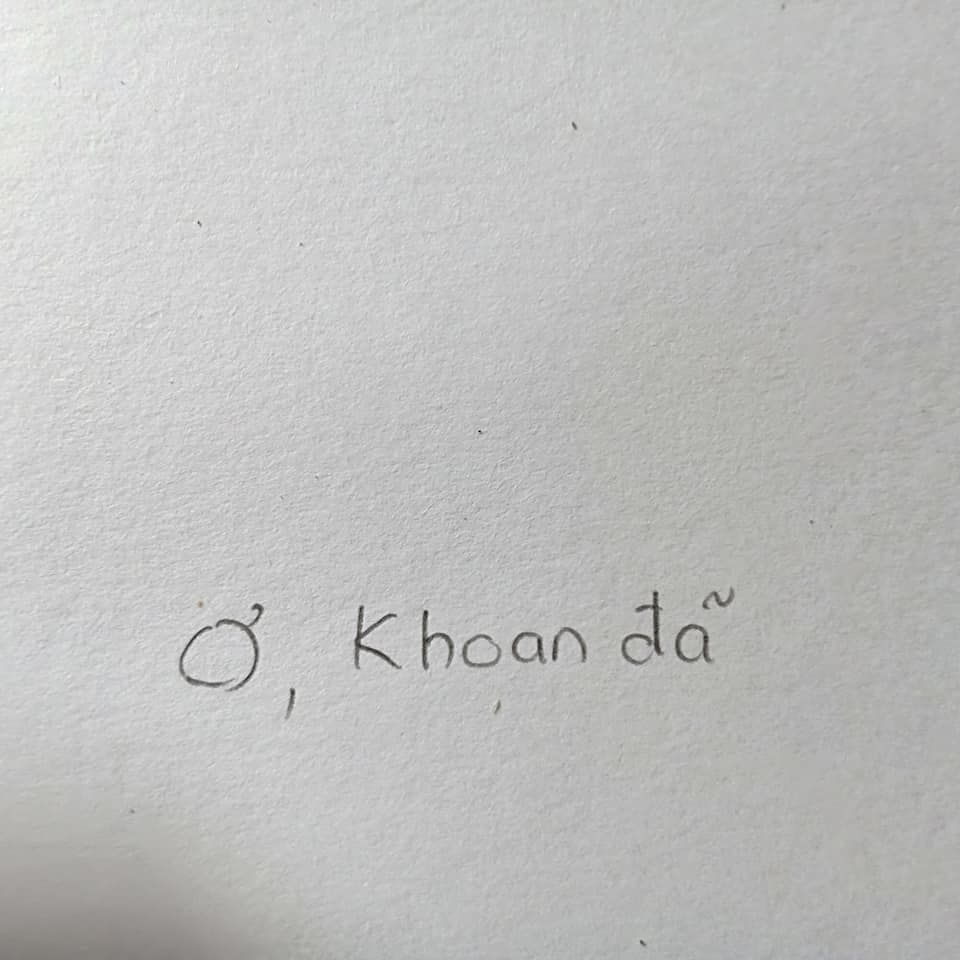 Ơ, Khoan đã